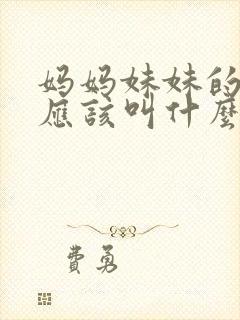 妈妈妹妹的
應該叫什麼
費勇